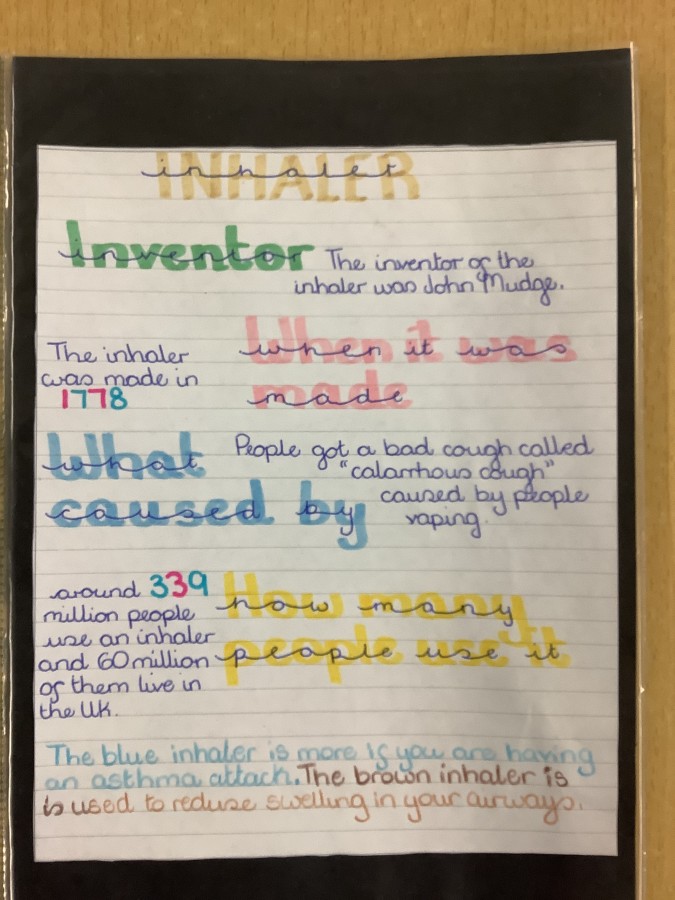 INHALER
inhaler
Inventor
The inventor of the
inhaler was John Mudge.
When it was
made
The inhaler
was made in
1778
What
caused by
People got a bad cough called
"calarrhous cough"
caused by people
vaping.
How many
people use it
around 339
million people
use an inhaler
and 60 million
of them live in
the UK.
The blue inhaler is more if you are having
an asthma attach. The brown inhaler is
is used to reduse swelling in your airways.